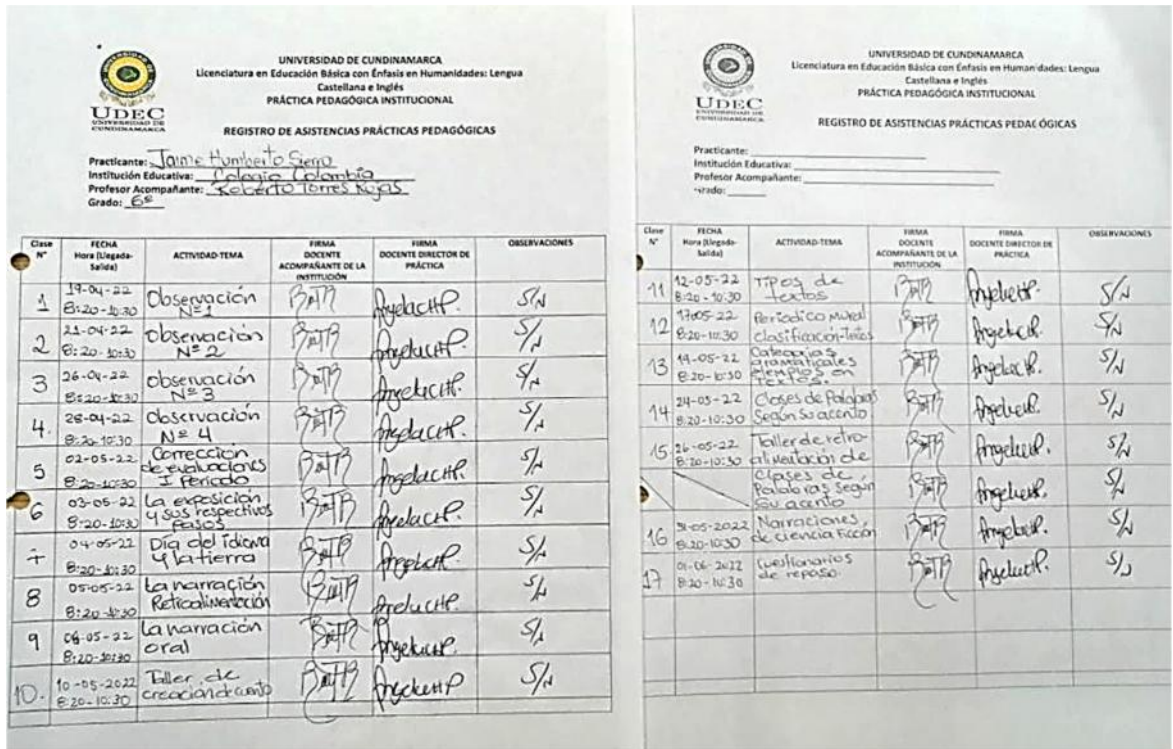 UDEC
UNIVERSIDAD DE
CUNDINAMARCA
UNIVERSIDAD DE CUNDINAMARCA
Licenciatura en Educación Básica con Énfasis en Humanidades: Lengua
Castellana e Inglés
PRÁCTICA PEDAGÓGICA INSTITUCIONAL
REGISTRO DE ASISTENCIAS PRÁCTICAS PEDAGÓGICAS
Practicante: Jaime Humberto Sierra
Institución Educativa: Colegio Colombia
Profesor Acompañante: Roberto Torres Rojas
Grado: 6º
Clase N° FECHA Hora (Llegada-Salida) ACTIVIDAD-TEMA FIRMA DOCENTE ACOMPAÑANTE DE LA INSTITUCIÓN FIRMA DOCENTE DIRECTOR DE PRÁCTICA OBSERVACIONES
1 19-04-22 8:20-10:30 Observación Nº1 S/N
2 21-04-22 8:20-10:30 Observación Nº 2 S/N
3 26-04-22 8:20-10:30 Observación Nº 3 S/N
4. 28-04-22 8:20-10:30 Observación Nº 4 S/N
5 02-05-22 8:20-10:30 Corrección de evaluaciones I Periodo S/N
6 03-05-22 8:20-10:30 La exposición y sus respectivos pasos S/N
7 04-05-22 8:20-10:30 Día del idioma y la tierra S/N
8 05-05-22 8:20-10:30 La narración Retroalimentación S/N
9 -05-22 8:20-10:30 La narración oral S/N
10. 10-05-2022 8:20-10:30 Taller de creación de cuento S/N
UDEC
UNIVERSIDAD DE
CUNDINAMARCA
UNIVERSIDAD DE CUNDINAMARCA
Licenciatura en Educación Básica con Énfasis en Humanidades: Lengua
Castellana e Inglés
PRÁCTICA PEDAGÓGICA INSTITUCIONAL
REGISTRO DE ASISTENCIAS PRÁCTICAS PEDAGÓGICAS
Practicante:
Institución Educativa:
Profesor Acompañante:
Grado:
Clase N° FECHA Hora (Llegada-Salida) ACTIVIDAD-TEMA FIRMA DOCENTE ACOMPAÑANTE DE LA INSTITUCIÓN FIRMA DOCENTE DIRECTOR DE PRÁCTICA OBSERVACIONES
11 12-05-22 8:20-10:30 Tipos de textos S/N
12 17-05-22 8:20-10:30 Periodico Mural clasificación-textos S/N
13 19-05-22 8:20-10:30 Categorías gramaticales ejemplos en textos. S/N
14 24-05-22 8:20-10:30 Clases de Palabras Según su acento S/N
15 26-05-22 8:20-10:30 Taller de retroalimentación de S/N
Clases de Palabras Según su acento S/N
16 31-05-2022 8:20-10:30 Narraciones, de ciencia ficción S/N
17 01-06-2022 8:20-10:30 Cuestionarios de repaso. S/N